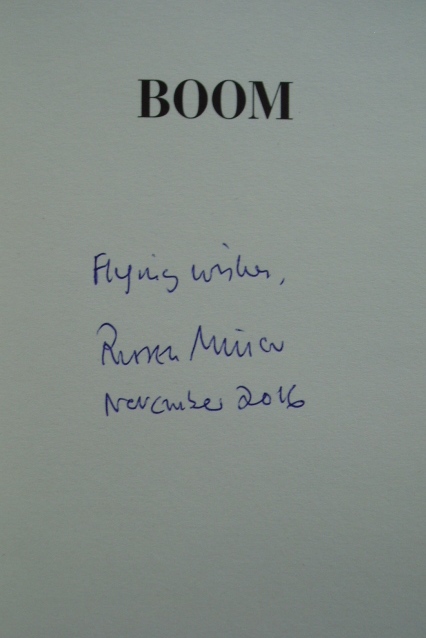 BOOM
Flying wishes,
Russell Miller
November 2016